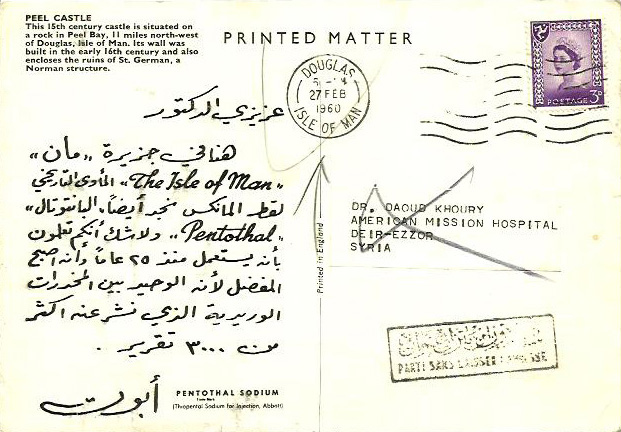 PEEL CASTLE
This 15th century castle is situated on
a rock in Peel Bay, 11 miles north-west
of Douglas, Isle of Man. Its wall was
built in the early 16th century and also
encloses the ruins of St. German, a
Norman structure.
PRINTED MATTER
DOUGLAS
27 FEB
1960
ISLE OF MAN
POSTAGE 3D
عزيزي الدكتور
هنا في جزيرة «مان»
«The Isle of Man» المأوى التاريخي
لقط المانكس نجد أيضاً، البانتوتال»
«Pentothal» ولا شك أنكم تعلمون
بأنه يستعمل منذ ٢٥ عاماً وأنه اصبح
المفضل لأنه الوحيد بين المخدرات
الوريدية الذي نشر عنه اكثر
من ٣٠٠٠ تقرير.
أبوت
PENTOTHAL SODIUM
Trade Mark
(Thiopental Sodium for Injection, Abbott)
Printed in England
DR. DAOUD KHOURY
AMERICAN MISSION HOSPITAL
DEIR-EZZOR
SYRIA
PARTI SANS LAISSER ADRESSE